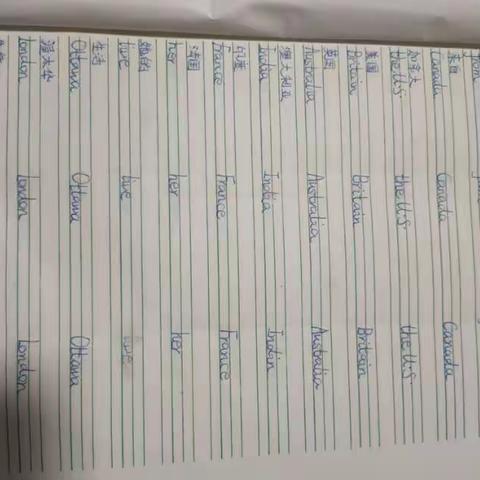 from
来自
Canada Canada Canada
加拿大
the U.S the U.S the U.S
美国
Britain Britain Britain
英国
Australia Australia Australia
澳大利亚
India India India
印度
France France France
法国
her her her
她的
live live live
生活
Ottawa Ottawa Ottawa
渥太华
London London London